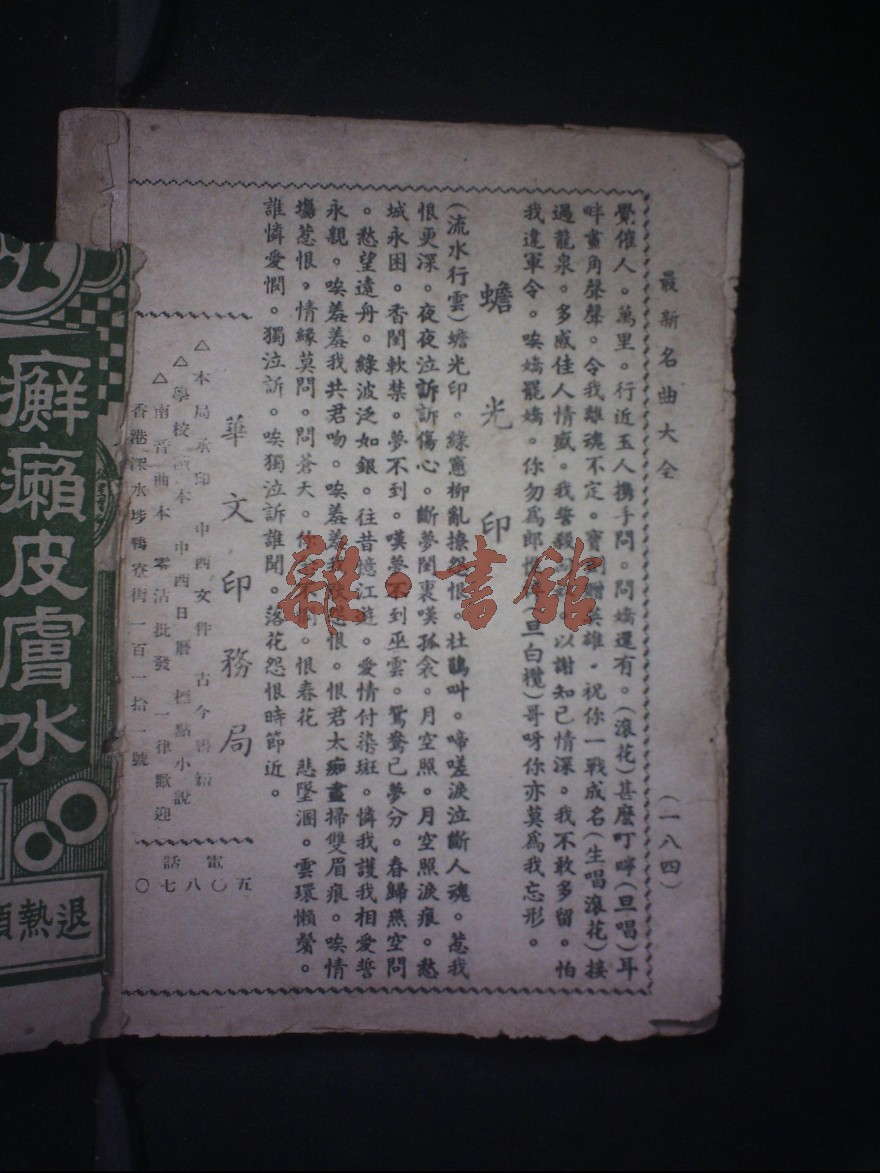 最新名曲大全
(一八四)
覺催人。萬里。行近玉人携手問。問嬌還有。(滾花)甚麼叮嚀(旦唱)耳
畔畫角聲聲。令我離魂不定。寶劍贈英雄。祝你一戰成名(生唱滾花)接
過龍泉。多感佳人情盛。我以謝知己情深。我不敢多留。怕
我違軍令。唉嬌罷嬌。你勿爲郎(旦白欖)哥呀你亦莫爲我忘形。
蟾光印
(流水行雲)蟾光印。綠蔥柳亂撩怨恨。杜鵑叫。啼嗟淚泣斷人魂。惹我
恨更深。夜夜泣訴訴傷心。斷夢閨裏嘆孤衾。月空照。月空照淚痕。愁
城永困。香閨軟禁。夢不到。嘆夢不到巫雲。鴛鴦已夢分。春歸燕空問
。愁望遠舟。綠波泛如銀。往昔憶江遊。愛情付染斑。憐我護我相愛誓
永親。唉羞羞我共君吻。唉羞羞我恨。恨君太痴畫掃雙眉痕。唉情
撝惹恨。情緣莫問。問蒼天。你。恨春花 悲墜溷。雲環懶鬢。
誰憐愛憫。獨泣訴。唉獨泣訴誰聞。落花怨恨時節近。
華文印務局
△本局承印中西文件古今書籍
△學校本中西日曆標點小說
△南音曲本零沽批發一律歡迎
香港深水埗鴨寮街一百一拾一號
電話
五〇八七〇
癬癩皮膚水
退熱
雜·書館